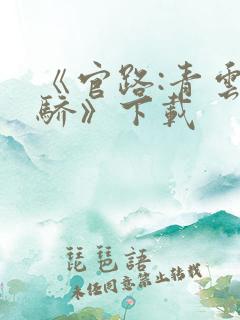 《官路:青雲
驕》下載
琵琶語
未经同意禁止转载